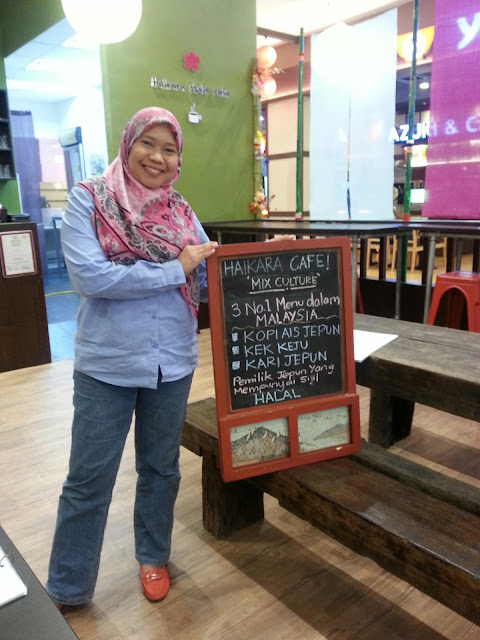 Haikara style cafe
HAIKARA CAFE!
"MIX CULTURE"
3 No.1 Menu dalam
MALAYSIA
KOPI AIS JEPUN
KEK KEJU
KARI JEPUN
Pemilik Jepun Yang
Mempunyai Sijil
HALAL